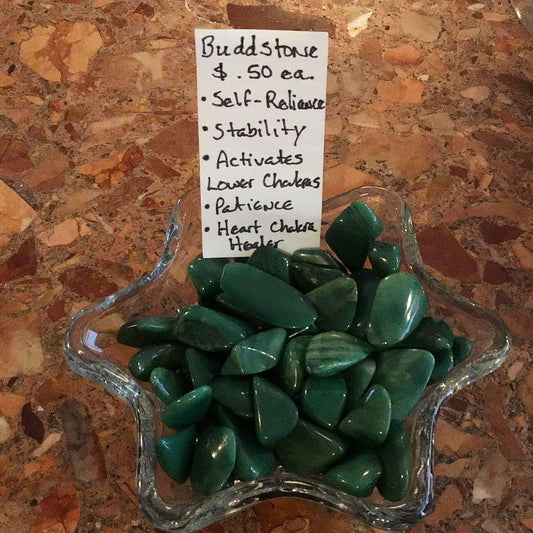 Buddstone
$ .50 ea.
• Self-Reliance
• Stability
• Activates
Lower Chakras
• Patience
• Heart Chakra
Healer